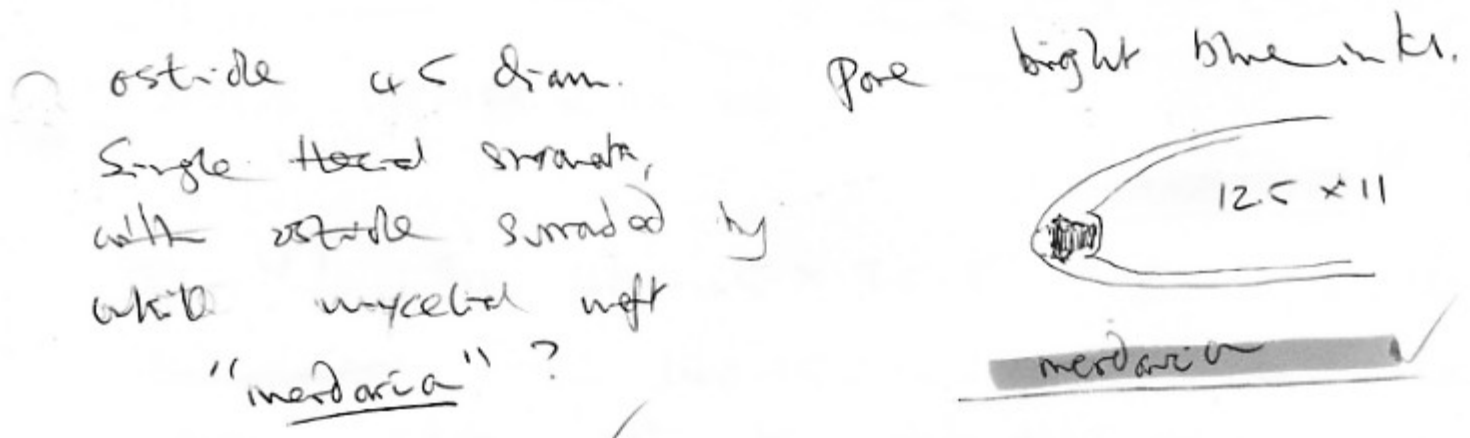 ostiole 45 diam.
Single stromata,
with ostiole surrounded by
white mycelial weft
"merdaria" ?
Pore bright blue in KI.
12.5 × 11
merdaria